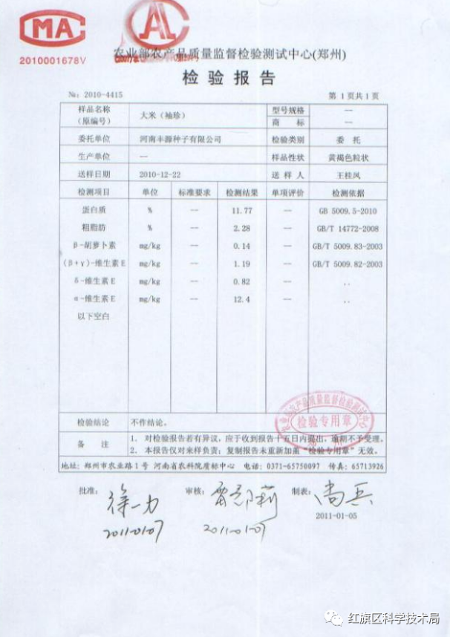 MA
AL
2010001678V
农业部农产品质量监督检验测试中心(郑州)
检验报告
№: 2010-4415 第1页共1页
样品名称(原编号) 大米（袖珍） 型号规格 —
商标 —
委托单位 河南丰源种子有限公司 检验类别 委托
生产单位 — 样品性状 黄褐色粒状
送样日期 2010-12-22 送样人 王桂风
检测项目 单位 标准要求 检测结果 单项评价 检测依据
蛋白质 % — 11.77 — GB 5009.5-2010
粗脂肪 % — 2.28 — GB/T 14772-2008
β-胡萝卜素 mg/kg — 0.14 — GB/T 5009.83-2003
(β+γ)-维生素E mg/kg — 1.19 — GB/T 5009.82-2003
δ-维生素E mg/kg — 0.82 — ..
α-维生素E mg/kg — 12.4 — ..
以下空白
检验专用章
检验结论 不作结论。
备注 1. 对检验报告若有异议，应于收到报告十五日内提出，逾期不予受理。
2. 本报告仅对来样负责；复制报告未重新加盖“检验专用章”无效。
地址: 郑州市农业路1号 河南省农科院质标中心 电话: 0371-65750097 传真: 65713926
批准: 徐一力 审核: 制表: 尚兵
2011-01-07 2011-01-07 2011-01-05
红旗区科学技术局